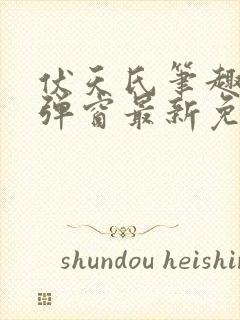 伏天氏笔趣
弹窗最新免
shundou heishin